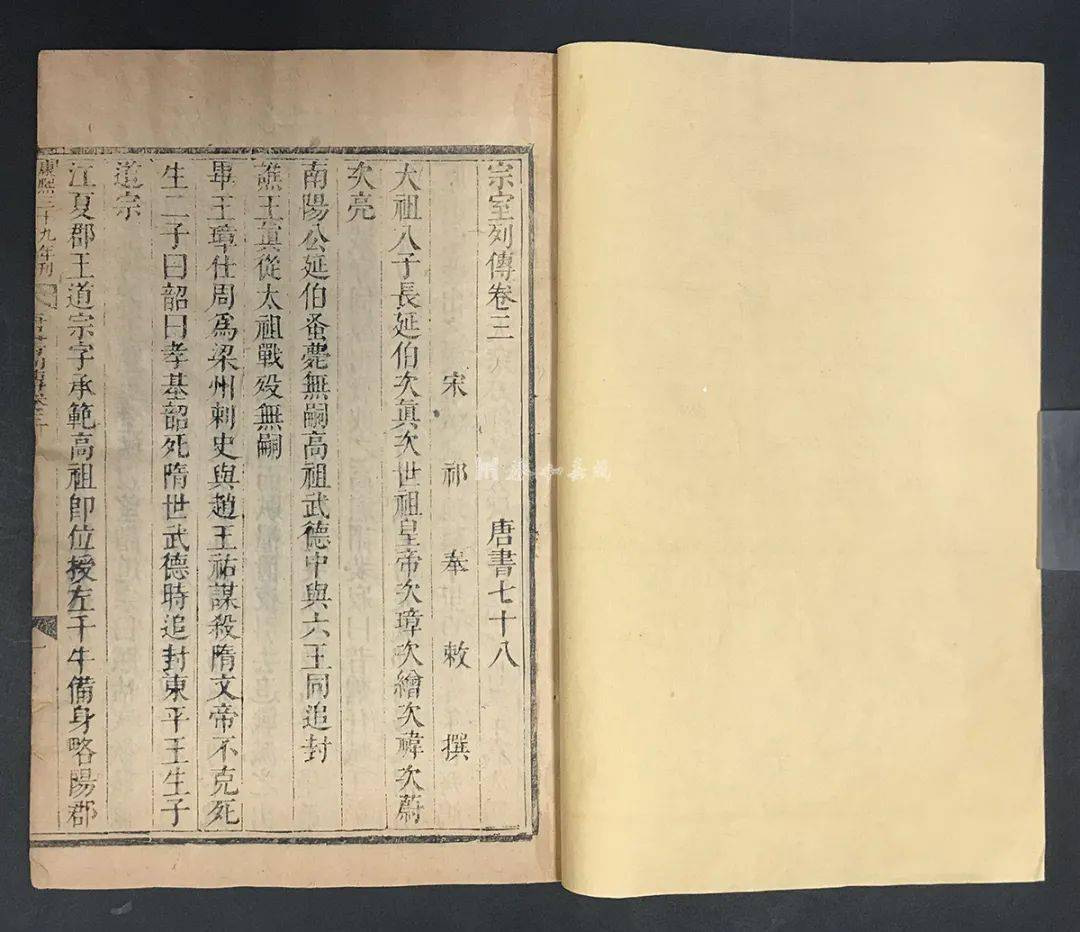 宗室列傳卷三　唐書七十八
宋　祁　奉　敕　撰
大祖八子長延伯次真次世祖皇帝次璋次繪次禕次蔚
次亮
南陽公延伯蚤薨無嗣高祖武德中與六王同追封
譙王真從太祖戰歿無嗣
畢王璋仕周爲梁州刺史與趙王祐謀殺隋文帝不克死
生二子曰韶曰孝基韶死隋世武德時追封東平王生子
道宗
江夏郡王道宗字承範高祖卽位授左千牛備身略陽郡
康熙三十九年刊